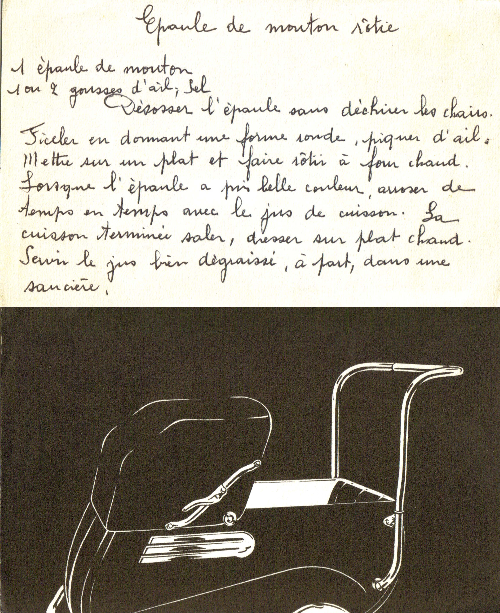 Epaule de mouton rôtie
1 épaule de mouton
1 ou 2 gousses d'ail, Sel
Désosser l'épaule sans déchirer les chairs.
Ficeler en donnant une forme ronde, piquer d'ail.
Mettre sur un plat et faire rôtir à four chaud.
Lorsque l'épaule a pris belle couleur, arroser de
temps en temps avec le jus de cuisson. La
cuisson terminée saler, dresser sur plat chaud.
Servir le jus bien dégraissé, à part, dans une
saucière.